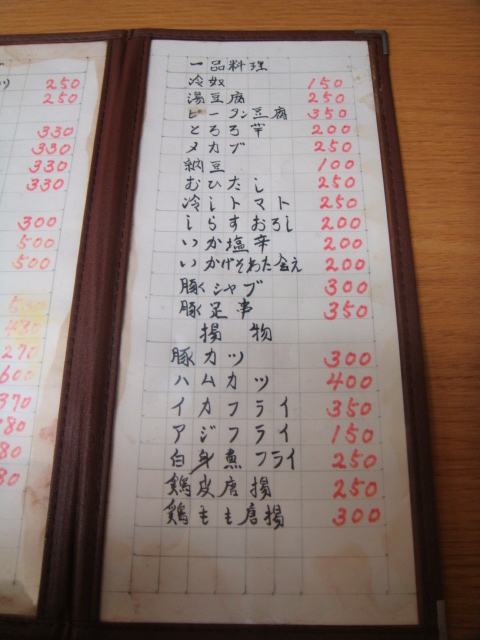 250
250
330
330
330
330
300
500
500
430
270
600
370
80
80
80
一品料理
冷奴 150
湯豆腐 250
ピータン豆腐 350
とろろ芋 200
メカブ 250
納豆 100
むひたし 250
冷しトマト 250
しらすおろし 200
いか塩辛 200
いかげそわた会え 200
豚シャブ 300
豚足事 350
揚物
豚カツ 300
ハムカツ 400
イカフライ 350
アジフライ 150
白身魚フライ 250
鶏皮唐揚 250
鶏もも唐揚 300